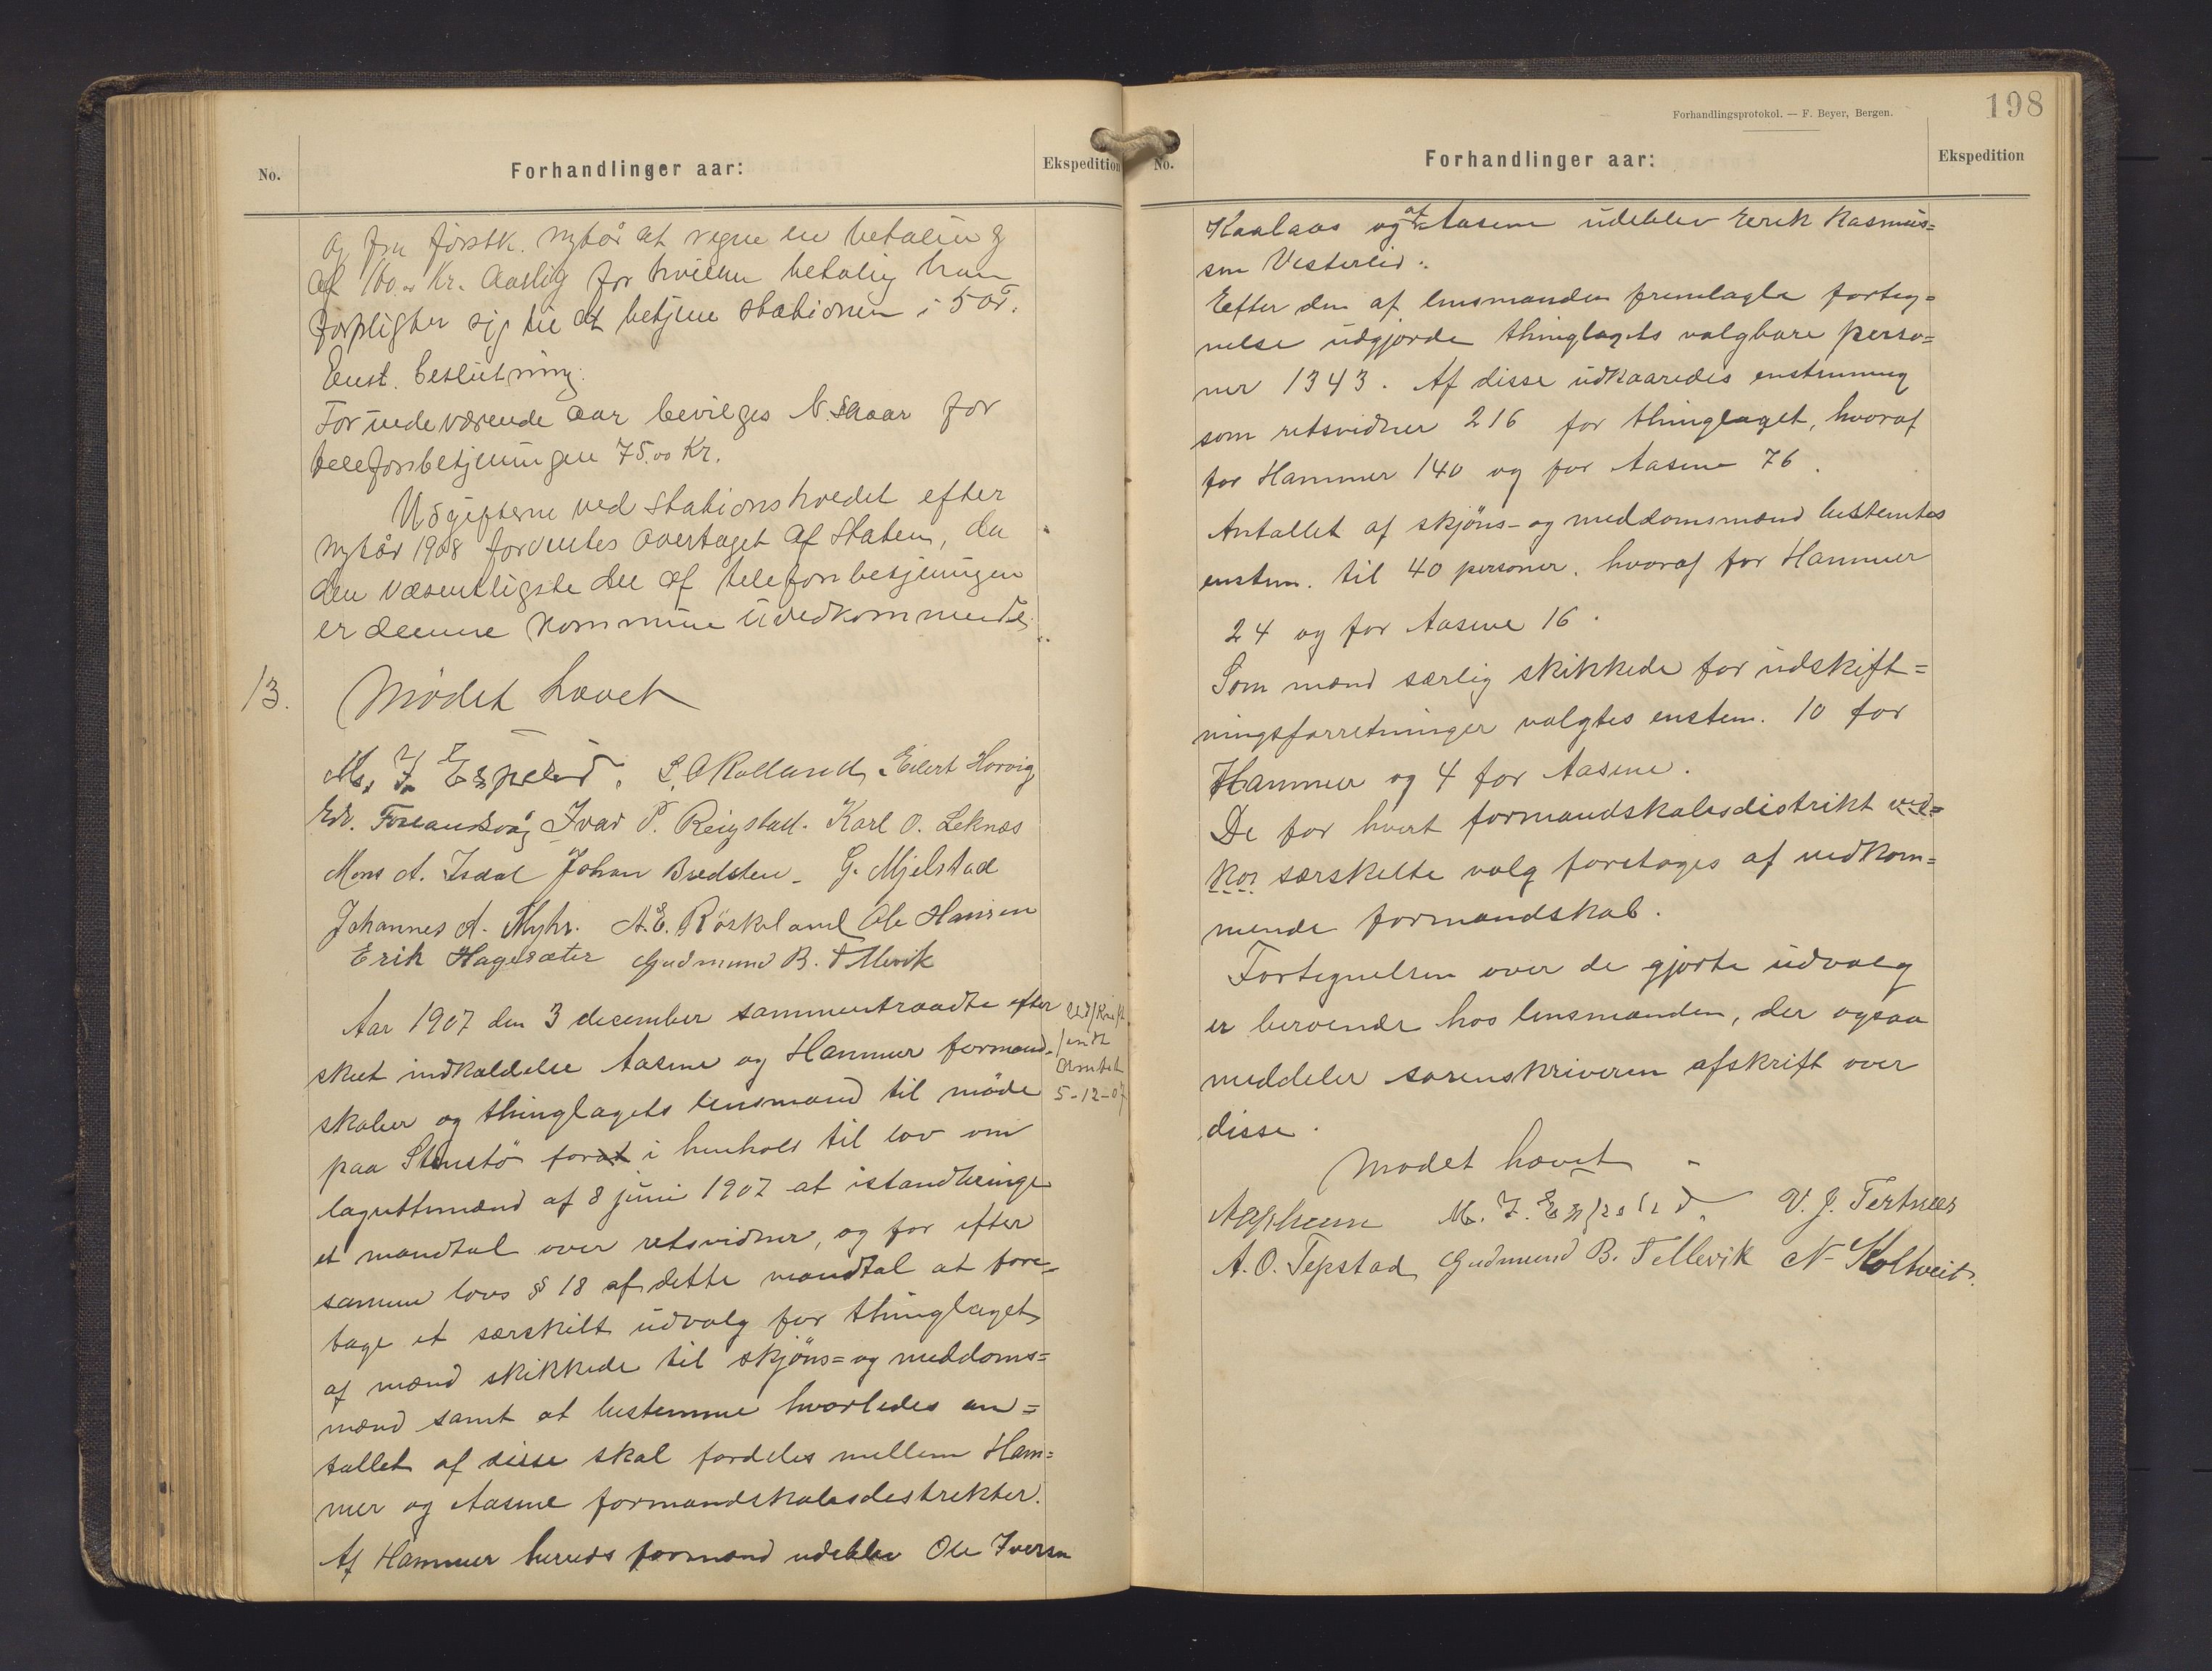 No.
Forhandlinger aar:
Ekspedition
og fra förstk. nytår at regne en betaling
af 100.00 Kr. Aarlig for hvilken betalig han
forpligter sig til at betjene stationen i 5 år.
Enst. beslutning:
For indeværende aar bevilges N. Skaar for
telefonbetjeningen 75.00 Kr.
Udgifterne ved stationsholdet efter
nytår 1908 forventes overtaget af Staten, da
den væsentligste del af telefonbetjeningen
er denne kommune uvedkommende.
13.
Mödet hævet
Ms. J. Espelid. L. O Kalland, Eilert Horvig
Edv. Frslandsvåg Ivar P. Reigstad. Karl O. Leknæs
Mons A. Isdal Johan Bredsten. G. Mjelstad
Johannes A. Myhr. A. E. Röskeland Ole Hansen
Erik Hagesæter Gudmund B. Tellevik
Aar 1907 den 3 december sammentraadte efter
skeet indkaldelse Aasene og Hammer formand-
skaber og thinglagets lensmand til möde
paa Stenstö forat i henhold til lov om
lagrettemænd af 8 juni 1907 at istandbringe
et mandtal over retsvidner, og for efter
samme lovs § 18 af dette mandtal at fore-
tage et særskilt udvalg for thinglaget
af mænd skikkede til skjöns= og meddoms=
mænd samt at bestemme hvorledes an=
tallet af disse skal fordeles mellem Ham=
mer og Aasene formandskabsdistrikter.
Af Hammer hereds formænd udeblev Ole Iversen
Udskrift
sendt
Amtet
5-12-07
198
Forhandlingsprotokol. — F. Beyer, Bergen.
No.
Forhandlinger aar:
Ekspedition
Kaalaas og af Aasene udeblev Eerik Rasmus=
sen Vesterlid.
Efter den af lensmanden fremlagte forteg=
nelse udgjorde thinglagets valgbare perso=
ner 1343. Af disse udkaaredes enstemmig
som retsvidner 216 for thinglaget, hvoraf
for Hammer 140 og for Aasene 76.
Antallet af skjöns- og meddomsmænd bestemtes
enstem. til 40 personer. hvoraf for Hammer
24 og for Aasene 16.
Som mænd særlig skikkede for udskift=
ningsforretninger valgtes enstem. 10 for
Hammer og 4 for Aasene.
De for hvert formandskabsdistrikt ved=
kom særskilte valg foretages af vedkom=
mende formandskab.
Fortegnelsen over de gjorte udvalg
er beroende hos lensmanden, der ogsaa
meddeler sorenskriveren afskrift over
disse.
Mödet hævet
M. J. Espelid. V. J. Tertnæs
A. O. Tepstad Gudmund B. Tellevik N Holtveit.